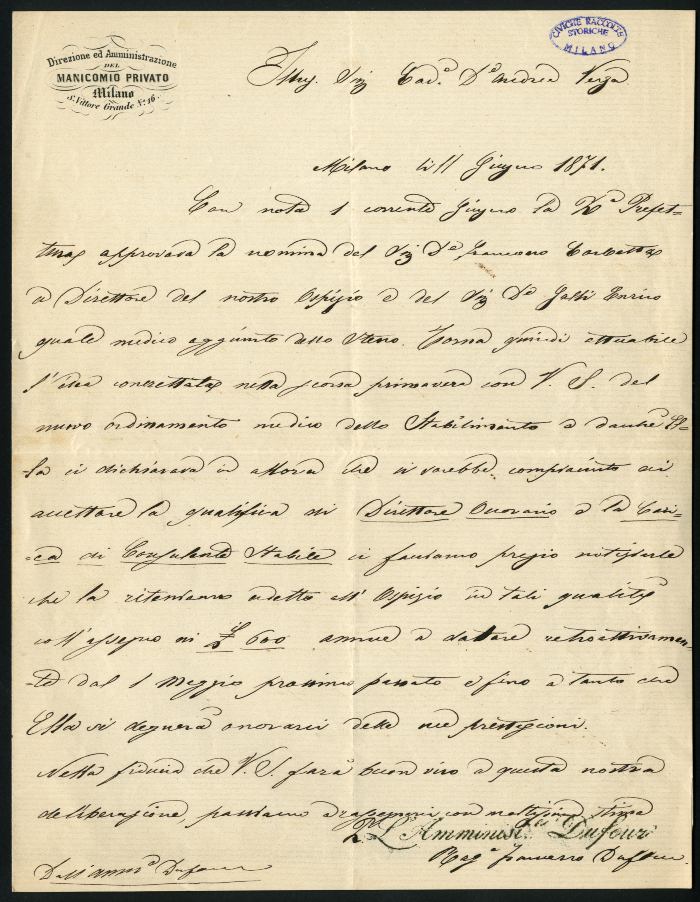 Direzione ed Amministrazione
DEL
MANICOMIO PRIVATO
Milano
S. Vittore Grande N.° 16.
CIVICHE RACCOLTE
STORICHE
MILANO
Illus. Sig Cav.e D.r Andrea Verga
Milano li 11 Giugno 1871.
Con nota 1 corrente Giugno la R.a Prefet-
tura approvava la nomina del Sig D.r Francesco
a Direttore del nostro Ospizio e del Sig D.r Galli Enrico
quale medico aggiunto dello Stesso. Torna quindi attuabile
l'idea concretata nella scorsa primavera con V. S. del
nuovo ordinamento medico dello Stabilimento e El-
la ci dichiarava in allora che si sarebbe compiaciuto di
accettare la qualifica di Direttore Onorario e la Cari-
ca di Consulente Stabile ci facciamo pregio notificarle
che la riteniamo addetto all'Ospizio in tali qualità
coll'assegno di £ 600 annue a datare retroattivamen-
te dal 1 Maggio prossimo passato e fino a tanto che
Ella si degnerà onorarci delle sue prestazioni.
Nella fiducia che V. S. farà buon viso a questa nostra
deliberazione, passiamo a rassegnarci con moltissima stima
L'Amminist. Dufour
Rag.e Francesco Dufour
Dall'amm.e Dufour